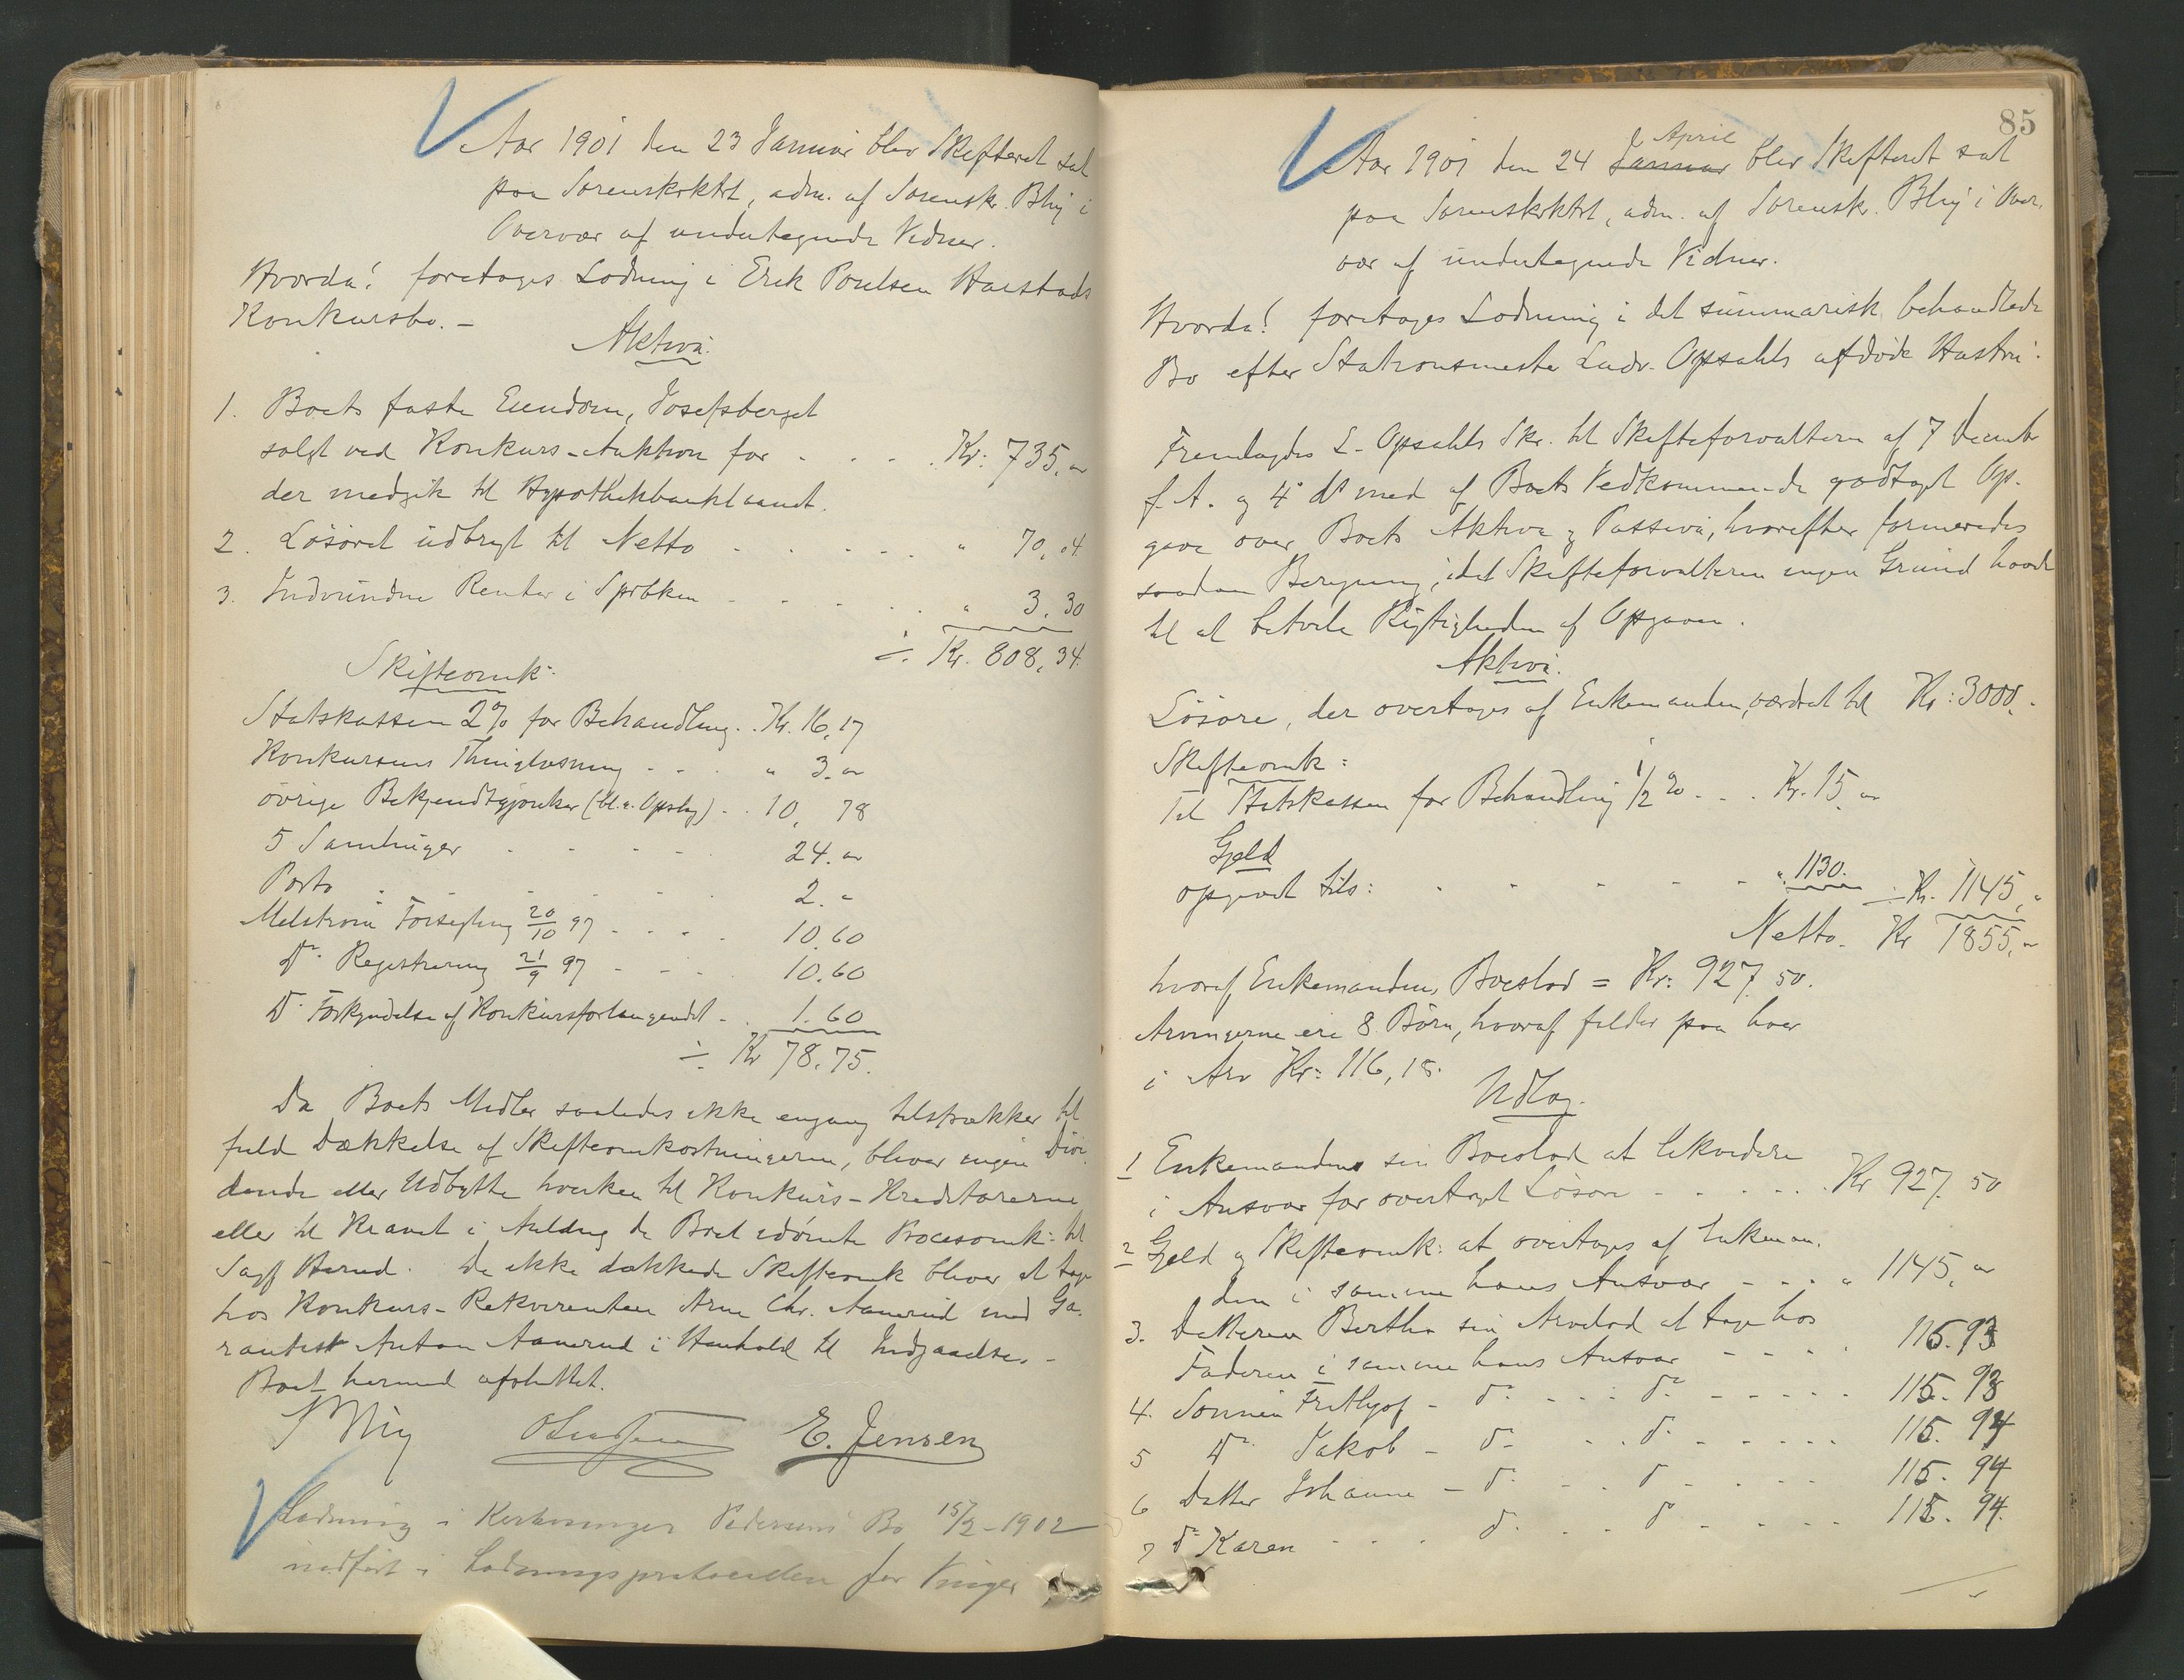 Aar 1901 den 23 Januar blev Skifteret sat
paa Sorenskrktrt, adm. af Sorenskr. Blij i
Overvær af undertegnede Vidner.
Hvorda! foretages Lodning i Erik Poulsen Harstads
Konkursbo. -
Aktiva.
1. Boets faste Eiendom, Josefsberget
solgt ved Konkurs-Auktion for - - - Kr. 735, "
der medgik til Hypothekbanklaanet.
2. Løsøret udbragt til Netto - - - - - " 70,04
3. Indvundne Renter i Sprbken - - - - - " 3,30
÷ Kr. 808,34
Skifteomk:
Statskassen 2% for Behandling . . Kr. 16,17
Konkursens Thinglæsning - - - " 3. "
øvrige Bekjendtgjørelser (bl. a. Opslag) . . 10, 78
5 Samlinger - - - - 24. "
Porto - - - - - 2. "
Melstrøm Forsegling 20/10 97 - - - - 10.60
Do Registrering 21/9 97 - - - 10.60
Do Forkyndelse af Konkursforlangendet - . 1.60
÷ Kr 78.75.
Da Boets Midler saaledes ikke engang tilstrækker til
fuld Dækkelse af Skifteomkostningerne, bliver ingen Divi-
dende eller Udbytte hverken til Konkurs-Kreditorerne
eller til Kravet i Anledng de Boet idømte Procesomk: til
Sagf Harud. De ikke dækkede Skifteomk bliver at tage
hos Konkurs-Rekvirenten Arne Chr. Aamerud med Ga-
rantist Anton Aamerud i Henhold til Indgaaelse. -
Boet hermed afsluttet.
E. Jensen
Lodning i Pedersens Bo 15/2-1902
indført i Lodningsprotocollen for Vinger
85
Aar 1901 den 24 Januar April blev Skifteret sat
paa Sorenskrktrt, adm. af Sorenskr. Blij i Over-
vær af undertegnede Vidner.
Hvorda! foretages Lodning i det summarisk behandlede
Bo efter Stationsmester Ludv. Opsahls afdøde Hustru.
Fremlagdes L. Opsahls Skr. til Skifteforvalteren af 7 Decembr
f. A. og 4 ds med af Boets Vedkommende godtaget Op-
gave over Boets Aktiva og Passiva, hvorefter formeredes
saadan Beregning, idet Skifteforvalteren ingen Grund havde
til at betvile Rigtigheden af Opgaven.
Aktiva.
Løsøre, der overtages af Enkemanden, værdsat til Kr: 3000, -
Skifteomk:
Til Statskassen for Behandling 1/2 % - - . Kr. 15, "
Gjeld
opgivet tils: - - - - - " 1130. ÷ Kr. 1145, "
Netto. Kr 1855, "
hvoraf Enkemandens Boeslod = Kr: 927,50.
Arvingerne ere 8 Børn, hvoraf falder paa hver
i Arv Kr: 116,18.
Udlæg.
1 Enkemanden sin Boeslod at likvidere
i Ansvar for overtaget Løsøre - - - - - Kr 927. 50
2 Gjeld og Skifteomk: at overtages af Enkeman-
den i samme hans Ansvar - - - " 1145, "
3. Datteren Bertha sin Arvelod at tage hos
Faderen i samme hans Ansvar - - - - 115.93
4. Sønnen Frithjof - do - - - do - - - - - 115. 93
5 Do Jakob - do - - . do - - - - - 115. 94
6 Datter Johanne - do - . . do - - - - 115. 94
7 do Karen - - - do - . . do - - - - 115. 94